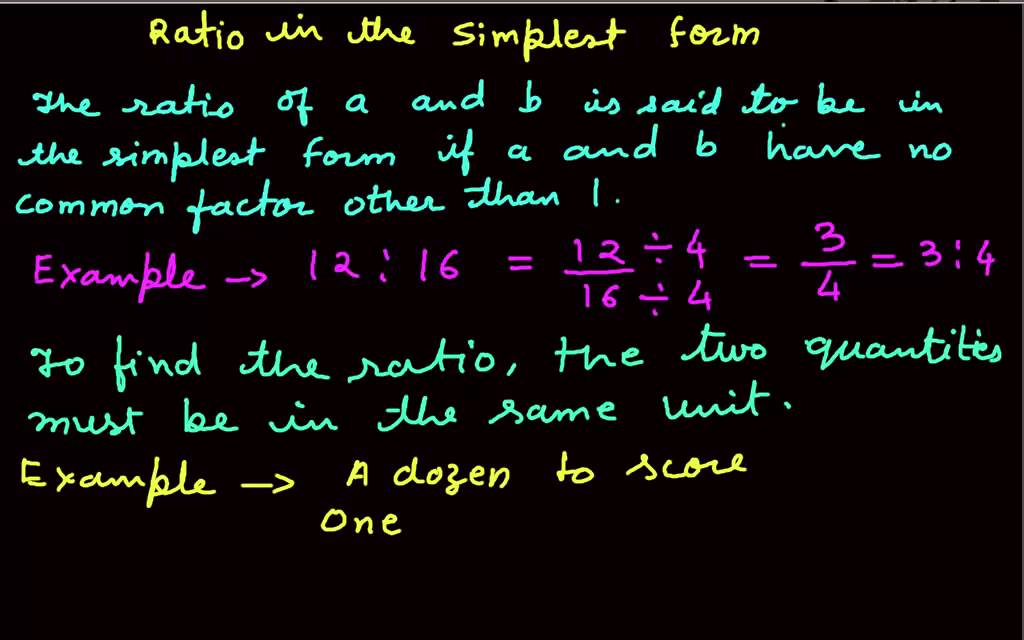 Ratio in the simplest form
The ratio of a and b is said to be in
the simplest form if a and b have no
common factor other than 1.
Example → 12 : 16 = 12 ÷ 4 / 16 ÷ 4 = 3/4 = 3 : 4
To find the ratio, the two quantities
must be in the same unit.
Example → A dozen to score
One